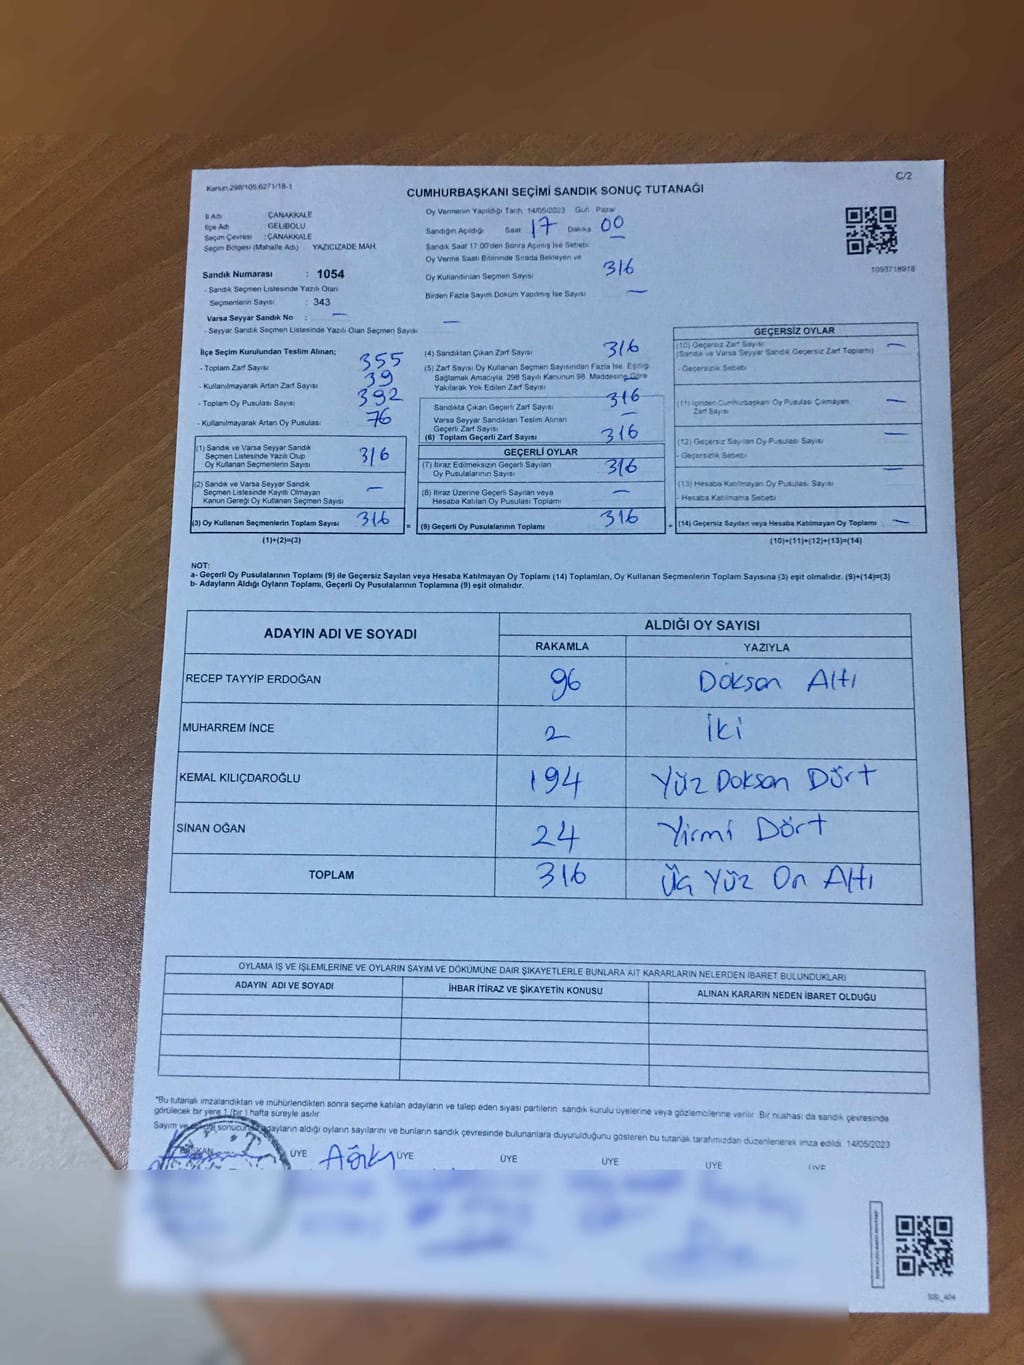 Kanun 298/105,6271/18-1
C/2
CUMHURBAŞKANI SEÇİMİ SANDIK SONUÇ TUTANAĞI
İl Adı : ÇANAKKALE
İlçe Adı : GELİBOLU
Seçim Çevresi : ÇANAKKALE
Seçim Bölgesi (Mahalle Adı) YAZICIZADE MAH.
Sandık Numarası : 1054
- Sandık Seçmen Listesinde Yazılı Olan
Seçmenlerin Sayısı : 343
Varsa Seyyar Sandık No : —
- Seyyar Sandık Seçmen Listesinde Yazılı Olan Seçmen Sayısı —
Oy Vermenin Yapıldığı Tarih 14/05/2023 Gün Pazar
Sandığın Açıldığı Saat 17 Dakika 00
Sandık Saat 17.00'den Sonra Açılmış İse Sebebi —
Oy Verme Saati Bitiminde Sırada Bekleyen ve
Oy Kullandırılan Seçmen Sayısı 316
Birden Fazla Sayım Döküm Yapılmış İse Sayısı —
1093718918
İlçe Seçim Kurulundan Teslim Alınan;
- Toplam Zarf Sayısı 355
- Kullanılmayarak Artan Zarf Sayısı 39
- Toplam Oy Pusulası Sayısı 392
- Kullanılmayarak Artan Oy Pusulası 76
(1) Sandık ve Varsa Seyyar Sandık
Seçmen Listesinde Yazılı Olup
Oy Kullanan Seçmenlerin Sayısı 316
(2) Sandık ve Varsa Seyyar Sandık
Seçmen Listesinde Kayıtlı Olmayan
Kanun Gereği Oy Kullanan Seçmen Sayısı —
(3) Oy Kullanan Seçmenlerin Toplam Sayısı 316 =
(1)+(2)=(3)
(4) Sandıktan Çıkan Zarf Sayısı 316
(5) Zarf Sayısı Oy Kullanan Seçmen Sayısından Fazla İse, Eşitliği
Sağlamak Amacıyla, 298 Sayılı Kanunun 98. Maddesine Göre
Yakılarak Yok Edilen Zarf Sayısı —
Sandıkta Çıkan Geçerli Zarf Sayısı 316
Varsa Seyyar Sandıktan Teslim Alınan
Geçerli Zarf Sayısı —
(6) Toplam Geçerli Zarf Sayısı 316
GEÇERLİ OYLAR
(7) İtiraz Edilmeksizin Geçerli Sayılan
Oy Pusulalarının Sayısı 316
(8) İtiraz Üzerine Geçerli Sayılan veya
Hesaba Katılan Oy Pusulası Toplamı —
(9) Geçerli Oy Pusulalarının Toplamı 316 +
GEÇERSİZ OYLAR
(10) Geçersiz Zarf Sayısı —
(Sandık ve Varsa Seyyar Sandık Geçersiz Zarf Toplamı)
- Geçersizlik Sebebi
(11) İçinden Cumhurbaşkanı Oy Pusulası Çıkmayan —
Zarf Sayısı
(12) Geçersiz Sayılan Oy Pusulası Sayısı —
- Geçersizlik Sebebi
(13) Hesaba Katılmayan Oy Pusulası Sayısı —
- Hesaba Katılmama Sebebi
(14) Geçersiz Sayılan veya Hesaba Katılmayan Oy Toplamı —
(10)+(11)+(12)+(13)=(14)
NOT:
a- Geçerli Oy Pusulalarının Toplamı (9) ile Geçersiz Sayılan veya Hesaba Katılmayan Oy Toplamı (14) Toplamları, Oy Kullanan Seçmenlerin Toplam Sayısına (3) eşit olmalıdır. (9)+(14)=(3)
b- Adayların Aldığı Oyların Toplamı, Geçerli Oy Pusulalarının Toplamına (9) eşit olmalıdır.
ADAYIN ADI VE SOYADI
ALDIĞI OY SAYISI
RAKAMLA YAZIYLA
RECEP TAYYİP ERDOĞAN 96 Doksan Altı
MUHARREM İNCE 2 İki
KEMAL KILIÇDAROĞLU 194 Yüz Doksan Dört
SİNAN OĞAN 24 Yirmi Dört
TOPLAM 316 Üç Yüz On Altı
OYLAMA İŞ VE İŞLEMLERİNE VE OYLARIN SAYIM VE DÖKÜMÜNE DAİR ŞİKAYETLERLE BUNLARA AİT KARARLARIN NELERDEN İBARET BULUNDUKLARI
ADAYIN ADI VE SOYADI İHBAR İTİRAZ VE ŞİKAYETİN KONUSU ALINAN KARARIN NEDEN İBARET OLDUĞU
*Bu tutanak imzalandıktan ve mühürlendikten sonra seçime katılan adayların ve talep eden siyasi partilerin sandık kurulu üyelerine veya gözlemcilerine verilir. Bir nüshası da sandık çevresinde
görülecek bir yere 1 (bir) hafta süreyle asılır.
Sayım ve sonucunda adayların aldığı oyların sayılarını ve bunların sandık çevresinde bulunanlara duyurulduğunu gösteren bu tutanak tarafımızdan düzenlenerek imza edildi. 14/05/2023
BAŞKAN ÜYE ÜYE ÜYE ÜYE ÜYE ÜYE